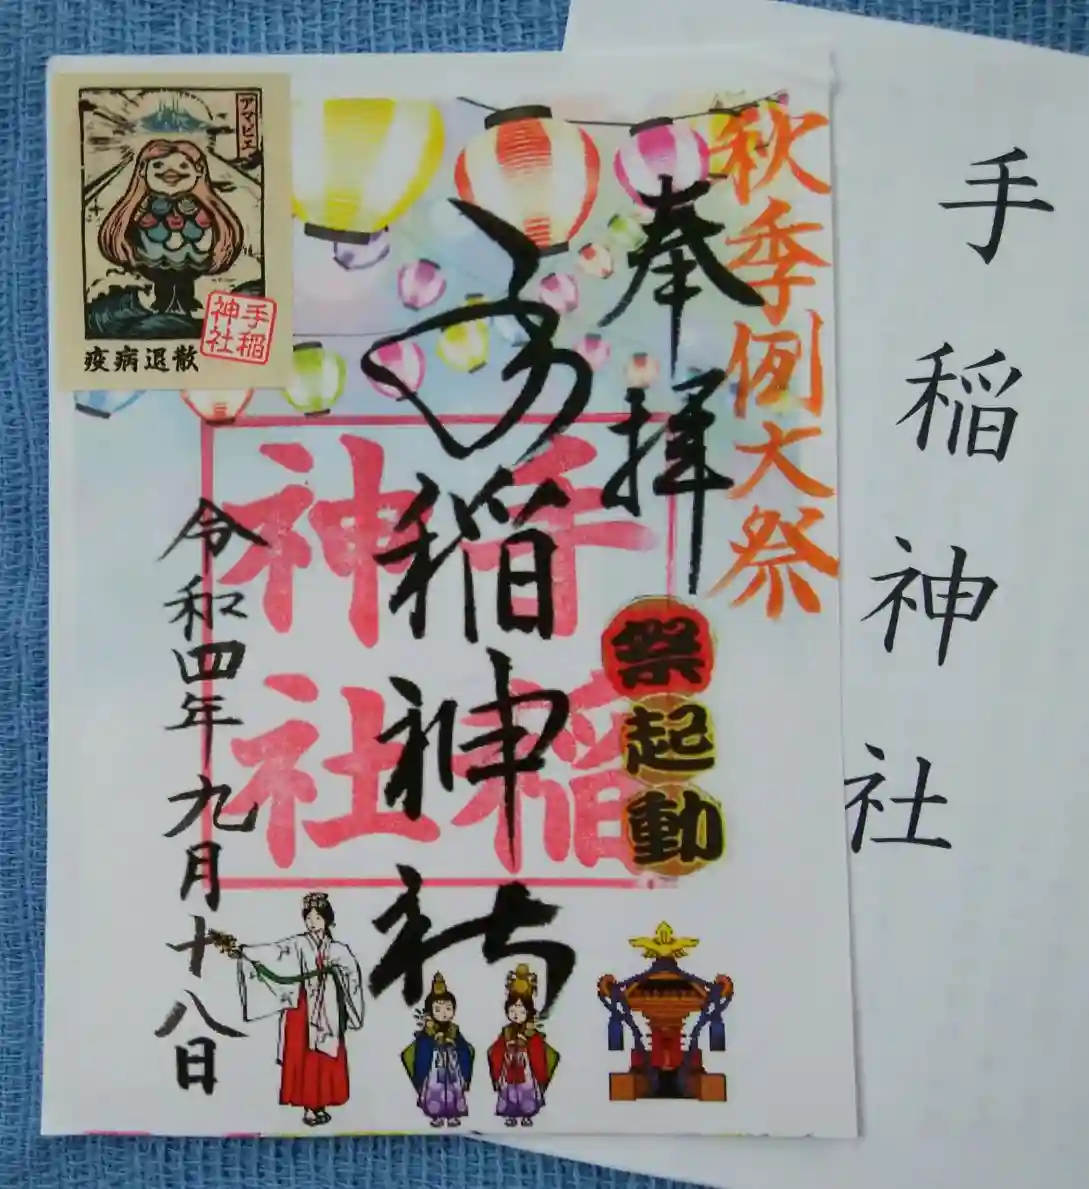 手稲神社
秋季例大祭
奉拝
手稲神社
手稲
神社
祭起動
令和四年九月十八日
アマビエ
手稲
神社
疫病退散